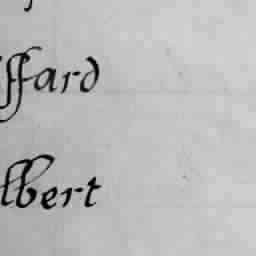 ffard
lbert